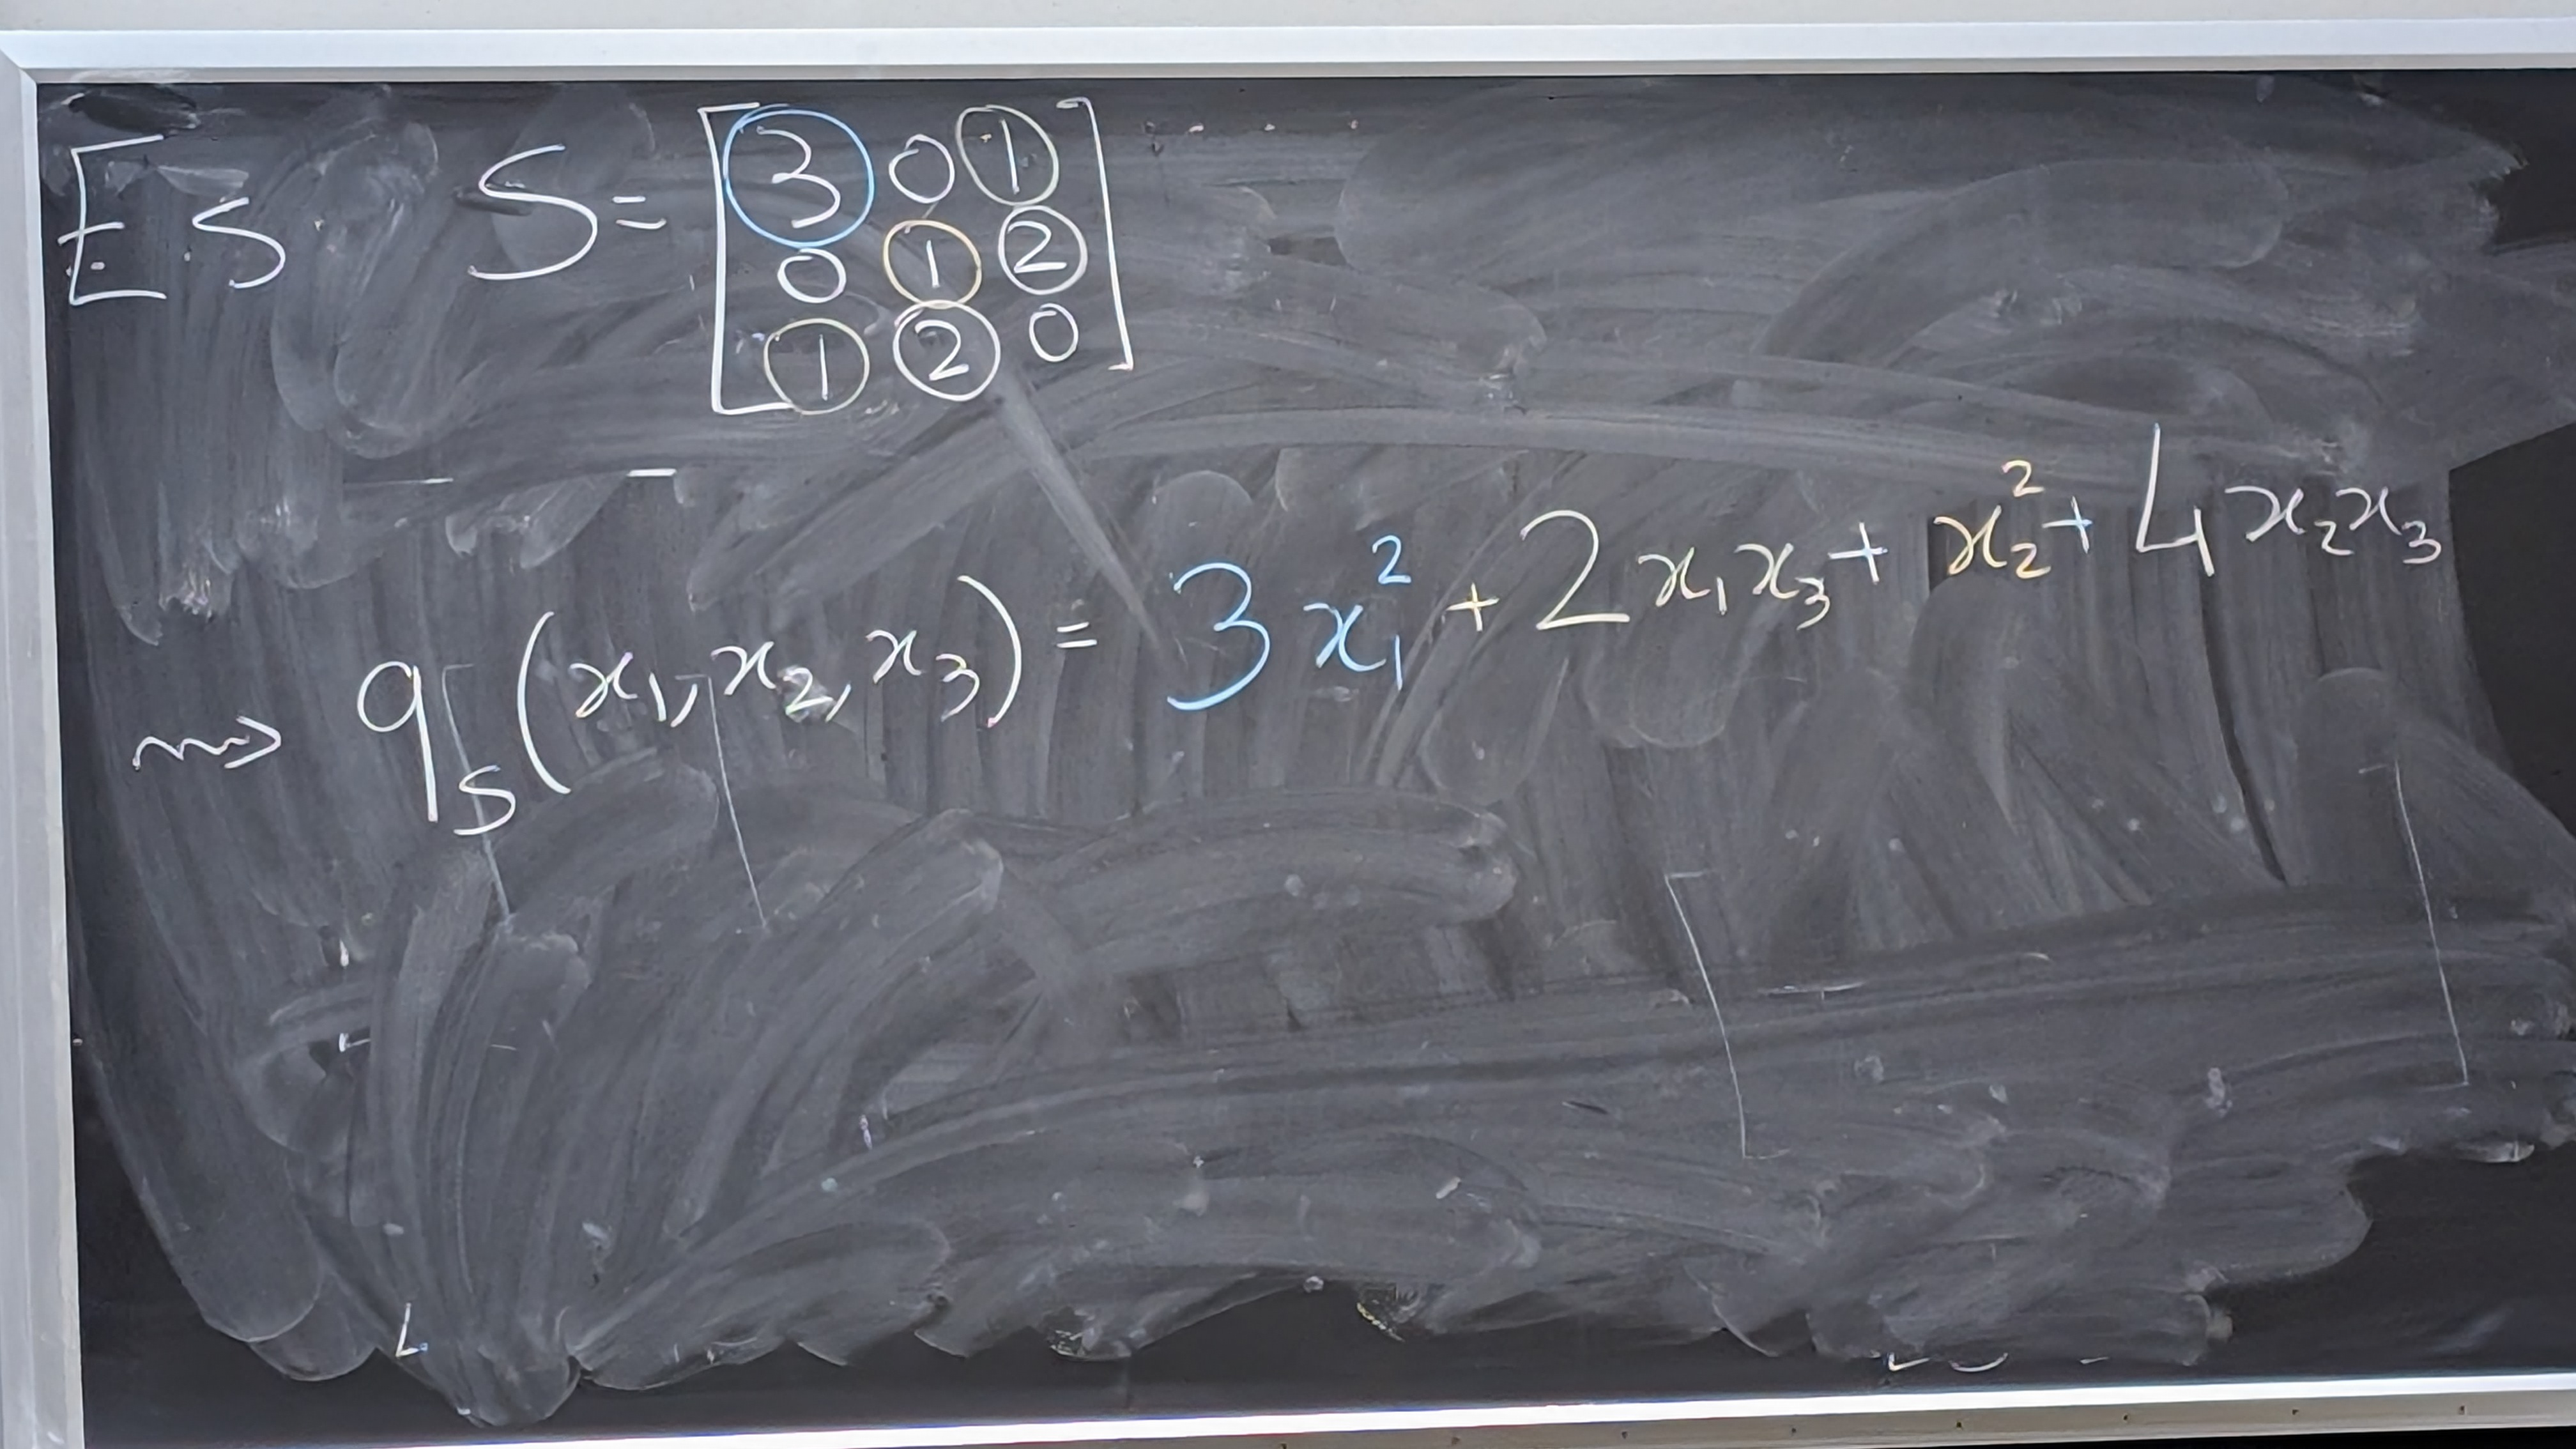 Es. S = [3 0 1
0 1 2
1 2 0]
⇝ q_S(x₁, x₂, x₃) = 3x₁² + 2x₁x₃ + x₂² + 4x₂x₃